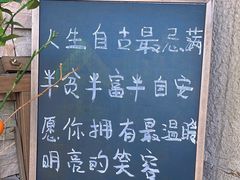 人生自古最忌满
半贫半富半自安
愿你拥有最温暖
明亮的笑容